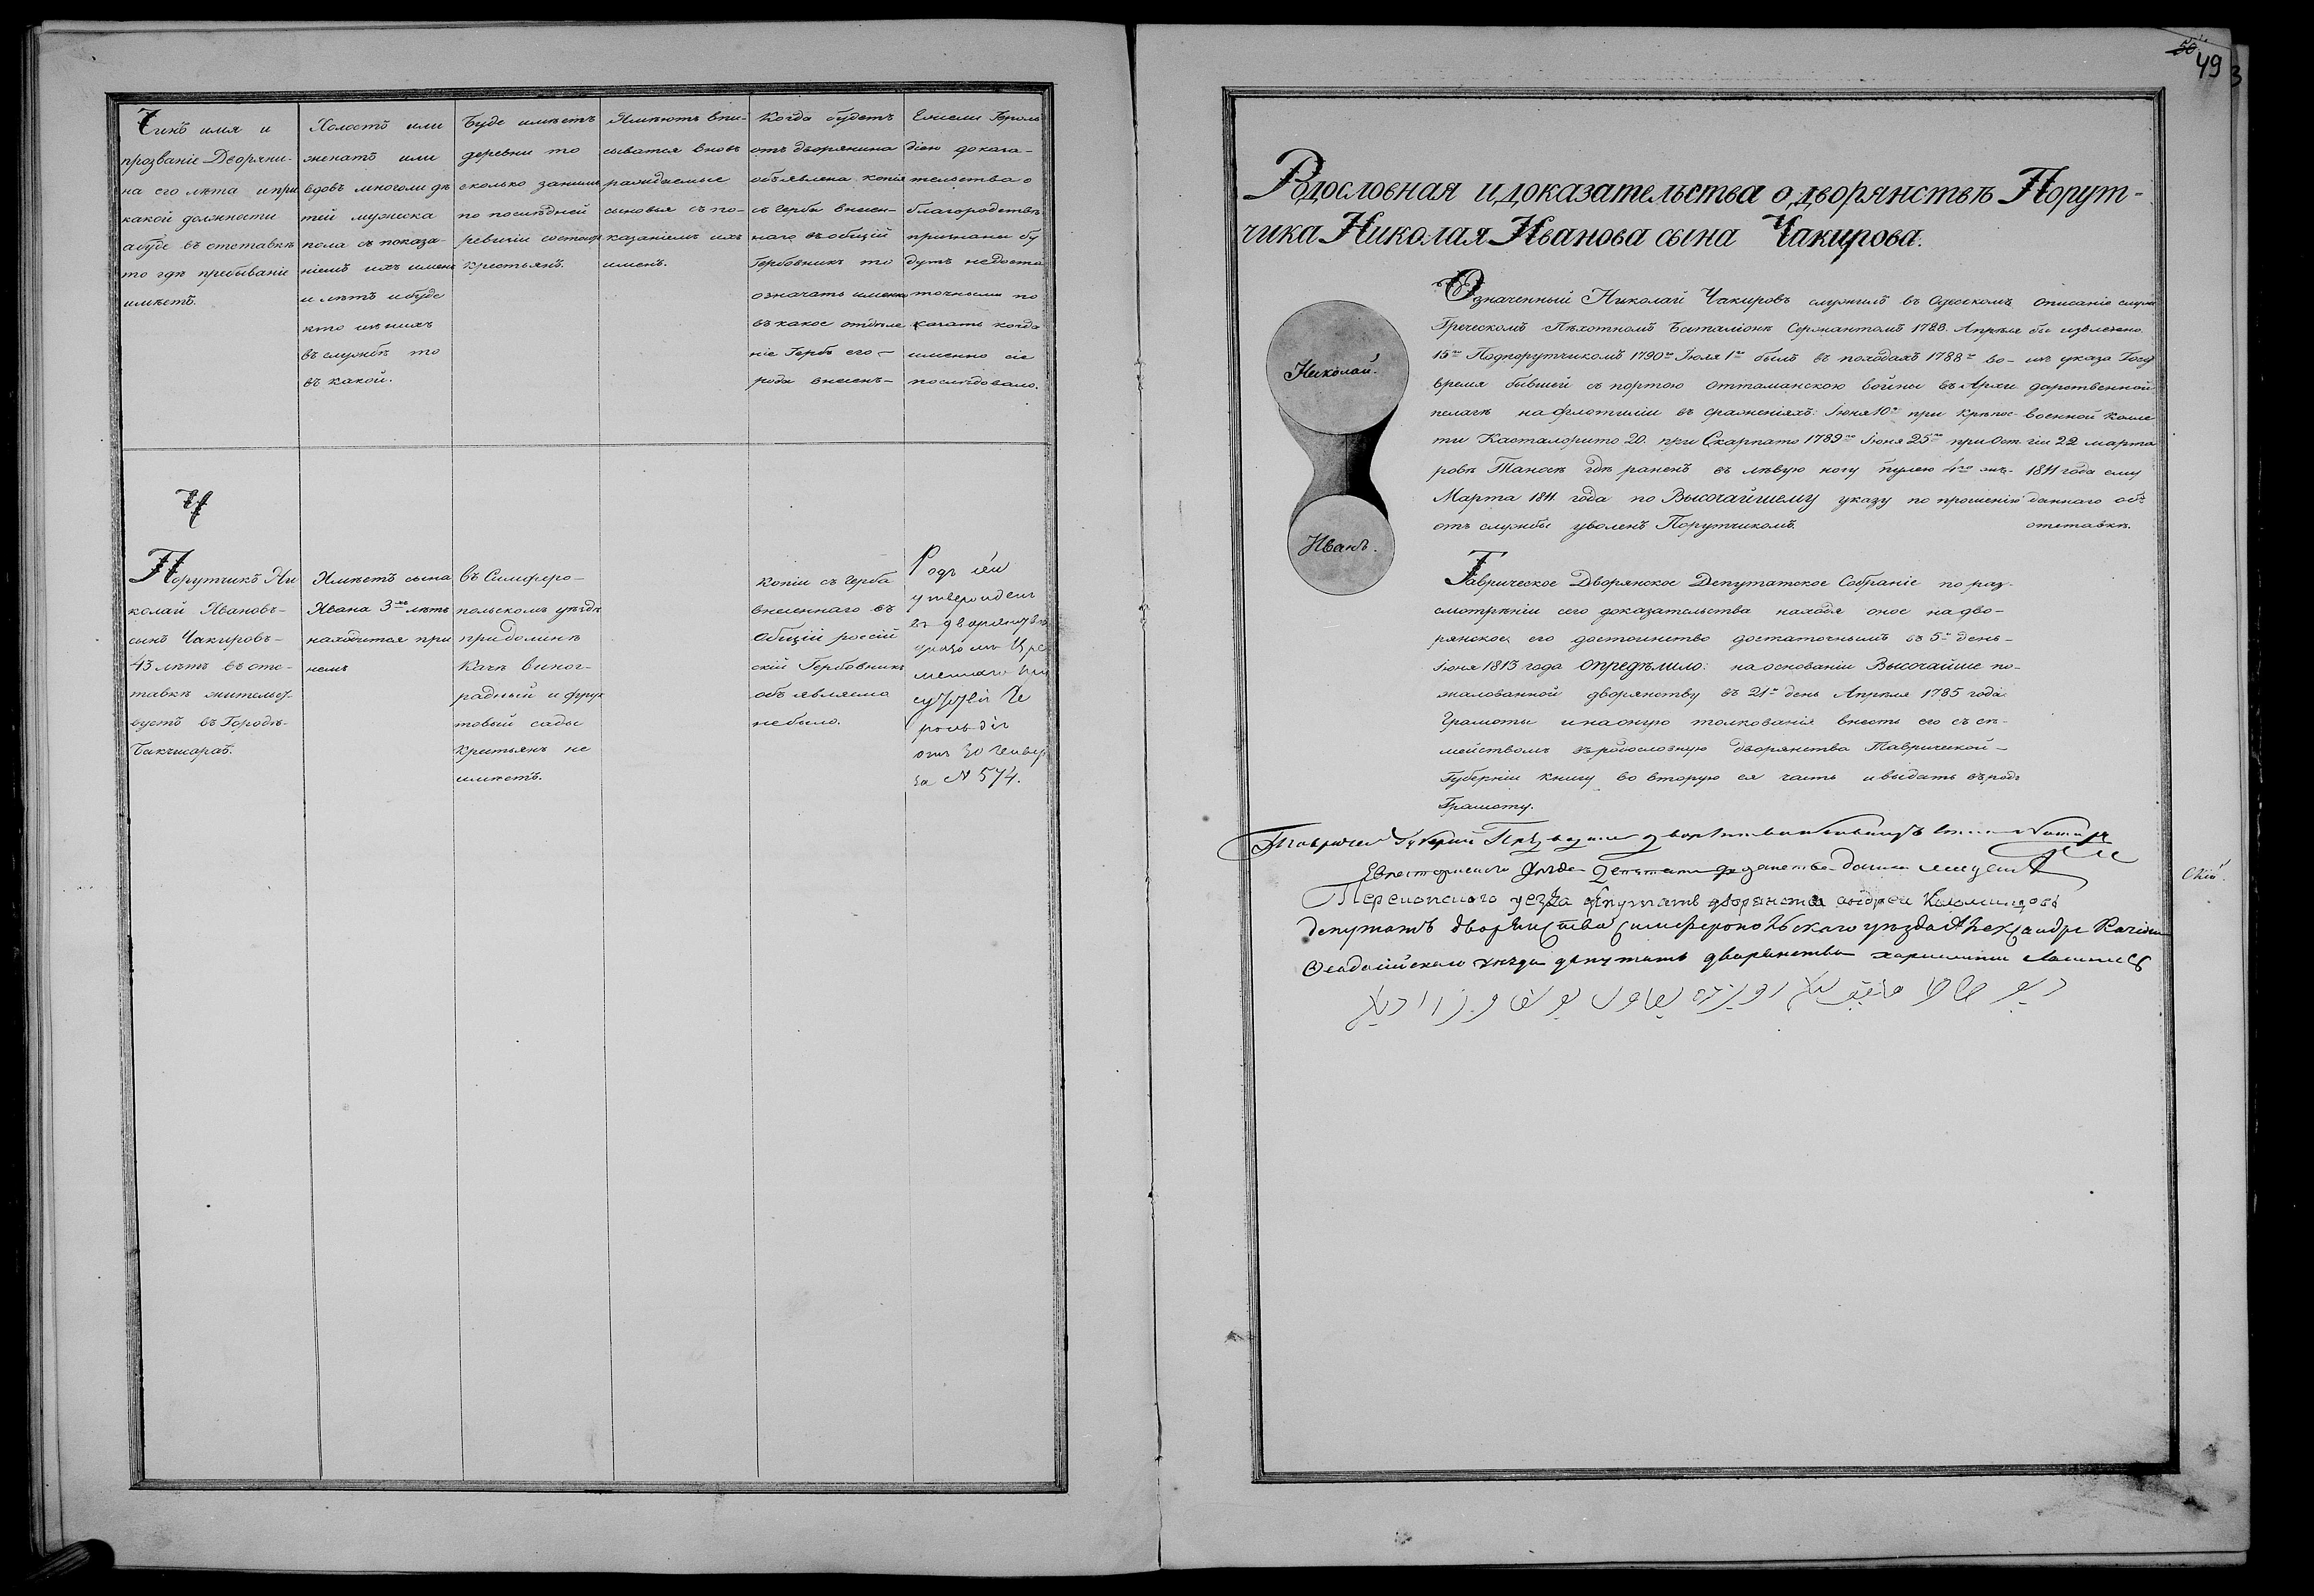 Чинъ имя и
прозваніе Дворяни-
на его лѣта и при
какой должности
а буде въ отставкѣ
то гдѣ пребываніе
имѣетъ.
Холостъ или
женатъ или
вдовъ многоли дѣ
тей мужска
пола съ показа-
ніемъ ихъ именъ
и лѣтъ и буде
кто изъ нихъ
въ службѣ то
въ какой.
Буде имѣетъ
деревни то
сколько за нимъ
по послѣдней
ревизіи состоитъ
крестьянъ.
Имѣютъ впи-
сыватся вновь
раждаемые
сыновья съ по-
казаніемъ ихъ
именъ.
Когда будетъ
отъ дворянина
объявлена копія
съ герба внесен-
наго въ общій
Гербовникъ то
означать именно
въ какое отдѣле
ніе Гербъ его
рода внесенъ-
Ежели Героль
діею доказа-
тельства о
благородствѣ
признаны бу
дутъ недоста
точными по
казать когда
именно сіе
послѣдовало.
Ч
Порутчикъ Ни
колай Ивановъ-
сынъ Чакировъ-
43 лѣтъ въ отс-
тавкѣ жительс-
вуетъ въ Городѣ-
Бакчисараѣ.
Имѣетъ сына
Ивана 3хъ лѣтъ
находится при
немъ
въ Симферо-
польскомъ уѣздѣ
при долинѣ
Качѣ виног-
радный и фрук
товый сады
кристьянъ не
имѣетъ.
Копіи съ герба
внесеннаго въ
Общій россій
скій Гербовникъ
объявлена
небыло.
Родъ сей
утвержденъ
въ дворянствѣ
указомъ Вре
меннаго При
сутствія Ге
рольдіи
отъ 30 Генвар
за N 574.
50
49
3
Родословная и доказательства о дворянствѣ Порут-
чика Николая Иванова сына Чакирова.
Николай.
Иванъ.
Означенный Николай Чакировъ служилъ въ Одескомъ
Греческомъ Пѣхотномъ Баталіонѣ Сержантомъ 1788. Апрѣля
15го Подпорутчикомъ 1790го Іюля 1го былъ въ походахъ 1788го во-
время бывшей съ портою оттаманскою войны въ Архи
пелагѣ на флотиліи въ сраженіяхъ: Іюня 10го при крѣпос-
ти Касталорито 20. при Скарпато 1789го Іюня 25го при Ост
ровѣ Таносѣ гдѣ раненъ въ лѣвую ногу пулею
Марта 1811 года по Высочайшему указу по прошенію
отъ службы уволенъ Порутчикомъ.
Описаніе служ
бы извлечено
изъ указа Госу
дарственной
военной колле
гіи 22 марта
1811 года ему
даннаго объ
отставкѣ.
Таврическое Дворянское Депутатское Собраніе по раз-
смотрѣніи сего доказательства находя оное на дво-
рянское его достоинство достаточнымъ въ 5й день-
Іюня 1813 года опредѣлило: на основаніи Высочайше по-
жалованной дворянству въ 21й день Апрѣля 1785 года
Грамоты и на оную толкованія внесть его съ се-
мействомъ въ родословную дворянства Таврической-
Губерніи книгу во вторую ея часть и выдать въ родъ
Грамоту.
Перекопского уезда депутатъ дворянства андрей
депутатъ дворянства симферопольскаго уѣзда Александръ
Феодосійскаго уѣзда депутатъ дворянства